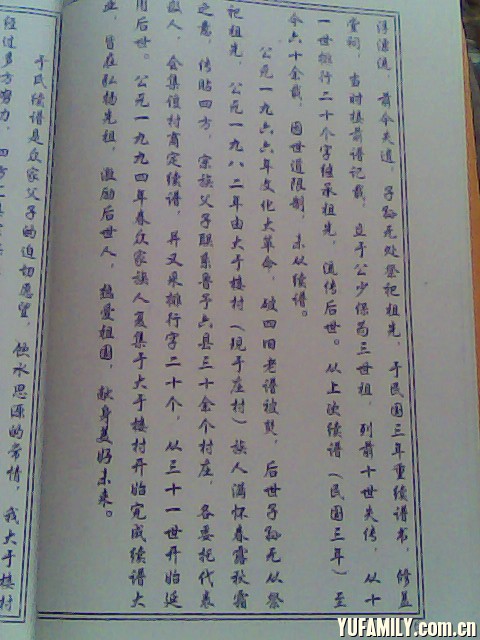 涛漂流，前今失道，子孙无处祭祀祖先，于民国三年重续谱书，修盖
堂祠，当时据前谱记载，立于公少保为三世祖，列前十世失传，从十
一世排行二十个字继承祖先，流传后世。从上次续谱（民国三年）至
今六十余载，因世道限制，未从续谱。
公元一九六六年文化大革命，破四旧老谱被焚，后世子孙无从祭
祀祖先，公元一九八二年由大于楼村（现于庄村）族人满怀春露秋霜
之意，传贴四方，宗族父子联系鲁予六县三十余个村庄，各委托代表
数人，会集值村商定续谱，并又采排行字二十个，从三十一世开始延
用后世。公元一九九四年春众家族人复集于大于楼村开始完成续谱大
业，皆在弘扬先祖，激励后世人，热爱祖国，献身美好未来。
于氏续谱是众家父子的迫切愿望，饮水思源的常情，我大于楼村
经过多方努力，四方
YUFAMILY.com.cn